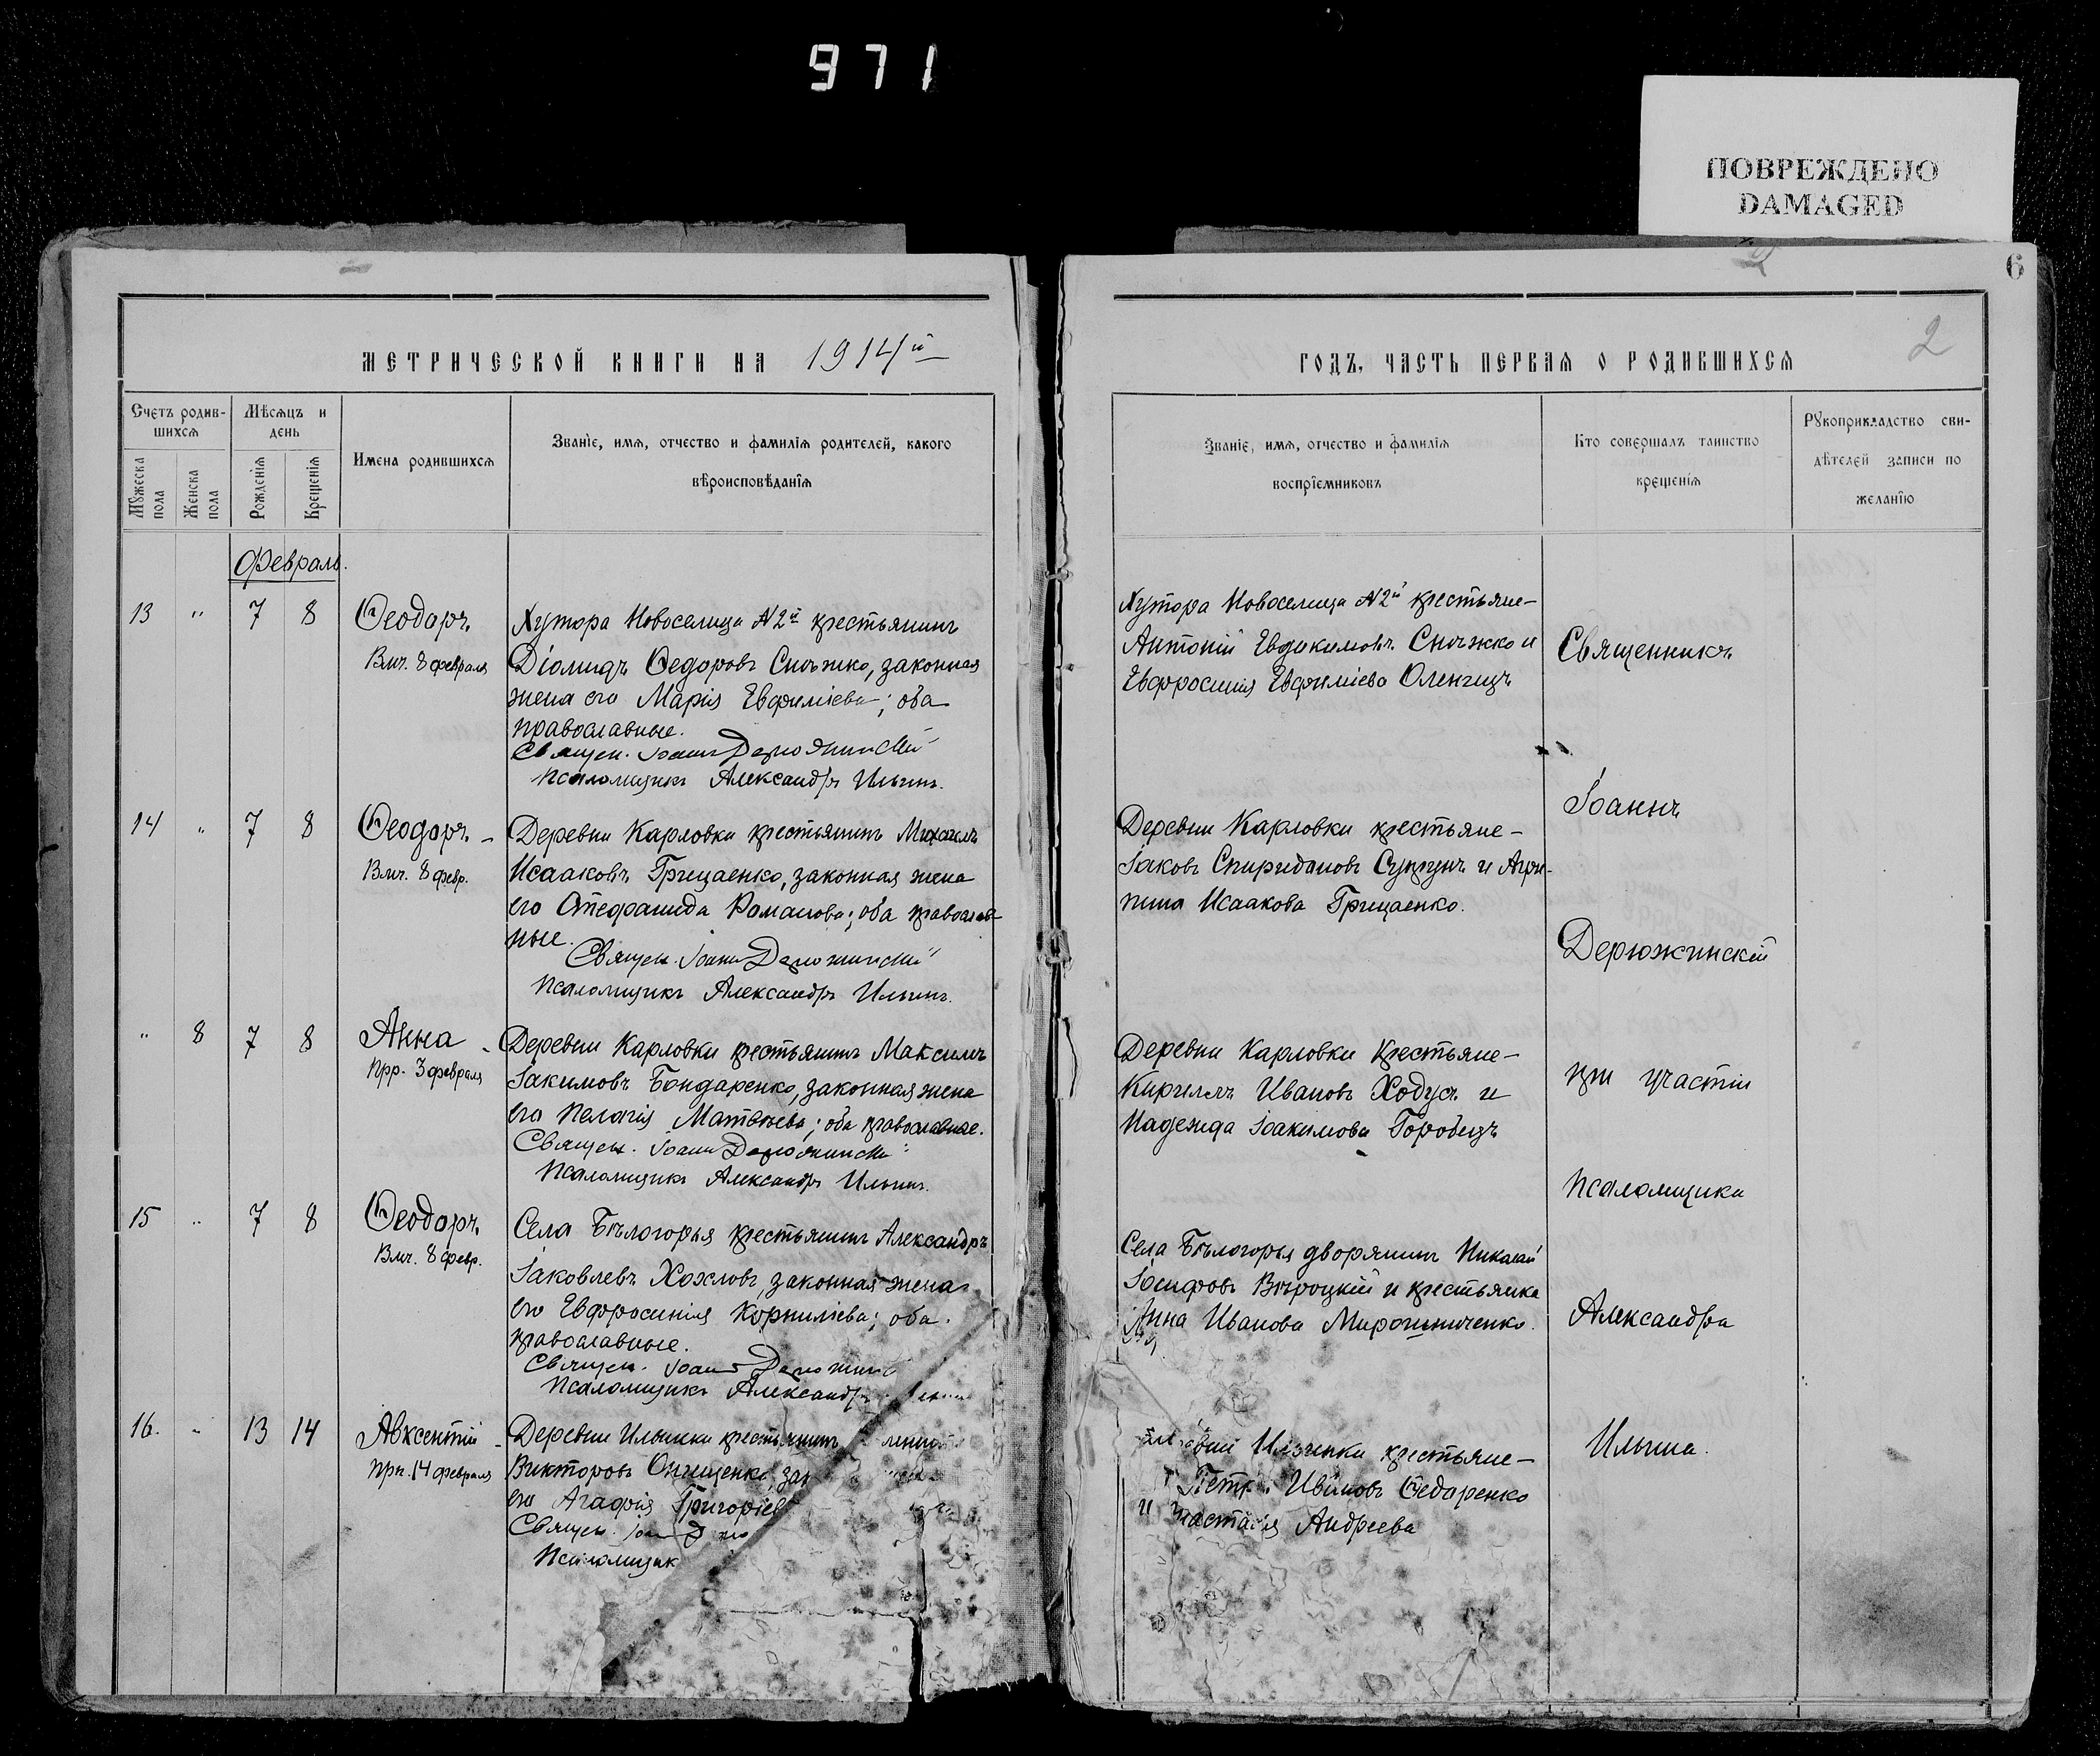 971
ПОВРЕЖДЕНО
DAMAGED
6
2
МЕТРИЧЕСКОЙ КНИГИ НА 1914й
Счетъ родив-
шихся
Мѣсяцъ и
день
Мужеска
пола
Женска
пола
Рожденія
Крещенія
Имена родившихся
Званіе, имя, отчество и фамилія родителей, какого
вѣроисповѣданія
Февраль.
13 " 7 8 Ѳеодоръ
Влч. 8 февраля
Хутора Новоселица N2й крестьянинъ
Діомидъ Ѳедоровъ Снѣжко, законная
жена его Марія Евфиміева; оба
православные.
Священ. Іоаннъ Дерюжинскій
Псаломщикъ Александръ Ильинъ.
14 " 7 8 Ѳеодоръ
Влч. 8 февр.
Деревни Карловки крестьянинъ Михаилъ
Исааковъ Грицаенко, законная жена
его Стефанида Романова; оба православ-
ные.
Священ. Іоаннъ Дерюжинскій
Псаломщикъ Александръ Ильинъ.
" 8 7 8 Анна
Прр. 3 февраля
Деревни Карловки крестьянинъ Максимъ
Іакимовъ Бондаренко, законная жена
его Пелагія Матвѣева; оба православные.
Священ. Іоаннъ Дерюжинскій
Псаломщикъ Александръ Ильинъ.
15 " 7 8 Ѳеодоръ
Влч. 8 февр.
Села Бѣлогорья крестьянинъ Александръ
Іаковлевъ Хохловъ, законная жена
его Евфросинія Корниліева; оба
православные.
Священ. Іоаннъ
Псаломщикъ Александръ
16. " 13 14 Авксентій
Прп. 14 февраля
Деревни Ильинки крестьянинъ
Викторовъ Онищенко, зак
его Агафія Григорьев
Священ.
Псаломщик
ГОДЪ, ЧАСТЬ ПЕРВАЯ О РОДИВШИХСЯ
Званіе, имя, отчество и фамилія
воспріемниковъ
Кто совершалъ таинство
крещенія
Рукоприкладство сви-
дѣтелей записи по
желанію
Хутора Новоселица N2й крестьяне-
Антоній Евдокимовъ Снѣжко и
Евфросинія Евфиміева Оленчицъ
Деревни Карловки крестьяне-
Іаковъ Спиридоновъ Супрунъ и Агри-
пина Исаакова Грицаенко.
Деревни Карловки крестьяне-
Кириллъ Ивановъ Ходусъ и
Надежда Іоакимова Горобецъ
Села Бѣлогорья дворянинъ Николай
Іосифовъ Вѣроцкій и крестьянка
Анна Иванова Мирошниченко.
крестьяне-
Петръ Ивановъ Ѳедоренко
и Настасія Андреева
Священникъ
Іоаннъ
Дерюжинскій
при участіи
псаломщика
Александра
Ильина.